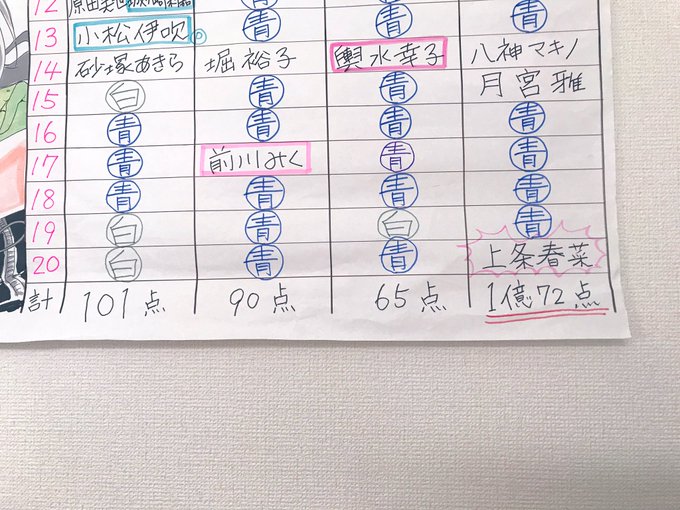 12 青 青 青
13 小松伊吹 青 青 青
14 砂塚あきら 堀裕子 輿水幸子 八神マキノ
15 白 青 青 月宮雅
16 青 青 青 青
17 青 前川みく 青 青
18 青 青 青 青
19 白 青 白 青
20 白 青 青 上条春菜
計 101点 90点 65点 1億72点